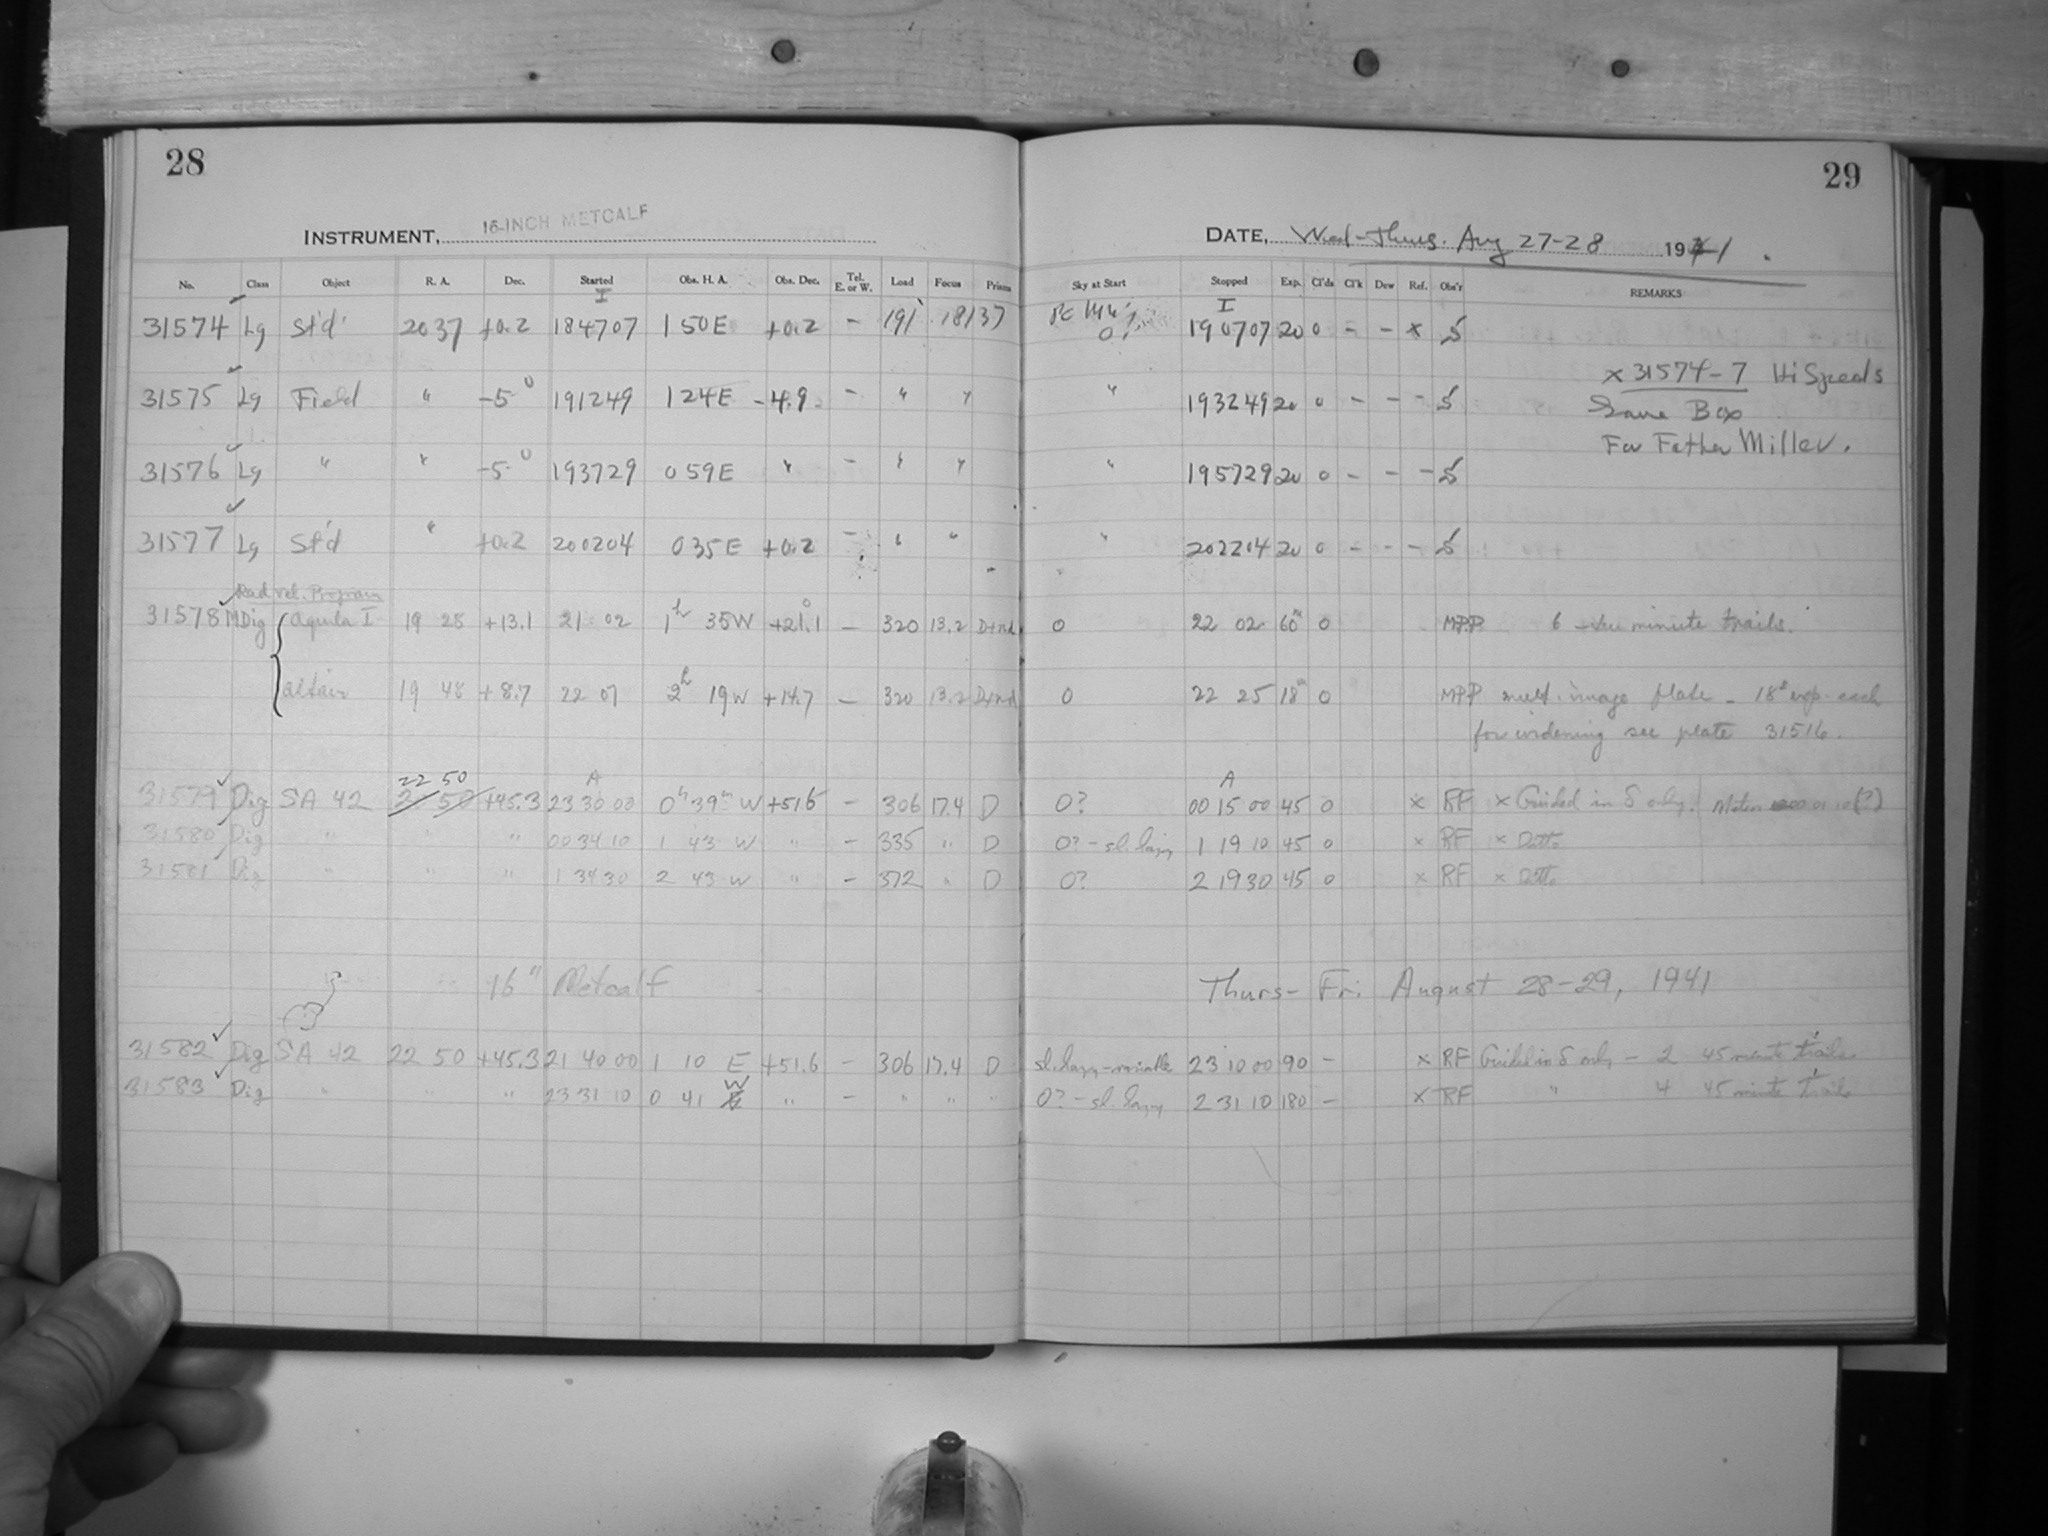 28
16-INCH METCALF
INSTRUMENT,
No. Class Object R. A. Dec. Started Obs. H. A. Obs. Dec. Tel. E. or W. Load Focus Prism
I
31574 Lg St'd 20 37 +0.2 184707 1 50 E +0.2 - 191 18137
31575 Lg Field " -5° 191249 1 24 E -4.9 - " "
31576 Lg " " -5° 193729 0 59 E " - " "
31577 Lg St'd " +0.2 200204 0 35 E +0.2 - " "
Rad vel. Program
31578 MDig Aquila I 19 28 +13.1 21 02 1h 35W +21.1 - 320 13.2 D+nd
Altair 19 48 +8.7 22 07 2h 19W +14.7 - 320 13.2 D+nd
22 50 A
31579 Dig SA 42 +45.3 23 30 00 0h 39m W +51.6 - 306 17.4 D
31580 Dig " " " 00 34 10 1 43 W " - 335 " D
31581 Dig " " " 1 34 30 2 43 W " - 372 " D
16" Metcalf
31582 Dig SA 42 22 50 +45.3 21 40 00 1 10 E +51.6 - 306 17.4 D
31583 Dig " " " 23 31 10 0 41 W " - " " "
29
DATE, Wed-Thurs. Aug 27-28 1941.
Sky at Start Stopped Exp. Cl'ds Cl'k Dew Ref. Obs'r REMARKS
I
0? 190707 20 0 - - x S
x 31574-7 Hi Speeds
" 193249 20 0 - - - S
Same Box
For Father Miller.
" 195729 20 0 - - - S
" 202204 20 0 - - - S
0 22 02 60m 0 MPP 6 ten minute trails.
0 22 25 18m 0 MPP mult. image plate - 18s exp. each
for widening see plate 31516.
A
0? 00 15 00 45 0 x RF x Guided in δ only. Meteor 01 10 (?)
0? - sl. hazy 1 19 10 45 0 x RF x Ditto
0? 2 19 30 45 0 x RF x Ditto
Thurs- Fri August 28-29, 1941
sl. hazy-variable 23 10 00 90 - x RF Guided in δ only - 2 45 minute trails
0? - sl. hazy 2 31 10 180 - x RF " 4 45 minute trails